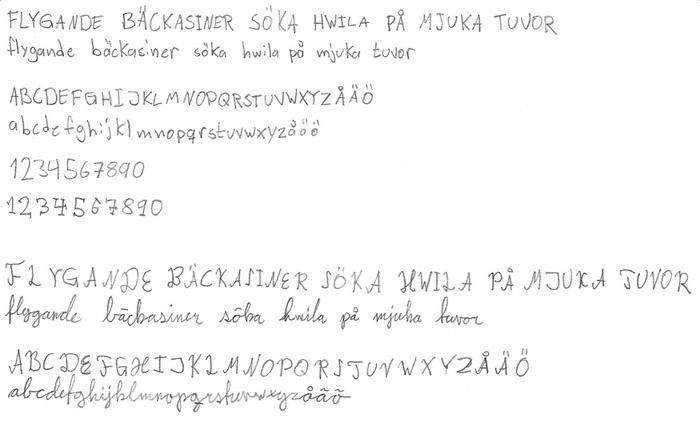 FLYGANDE BÄCKASINER SÖKA HWILA PÅ MJUKA TUVOR
flygande bäckasiner söka hwila på mjuka tuvor
ABCDEFGHIJKLMNOPQRSTUVWXYZÅÄÖ
abcdefghijklmnopqrstuvwxyzåäö
1234567890
1234567890
FLYGANDE BÄCKASINER SÖKA HWILA PÅ MJUKA TUVOR
flygande bäckasiner söka hwila på mjuka tuvor
ABCDEFGHIJKLMNOPQRSTUVWXYZÅÄÖ
abcdefghijklmnopqrstuvwxyzåäö